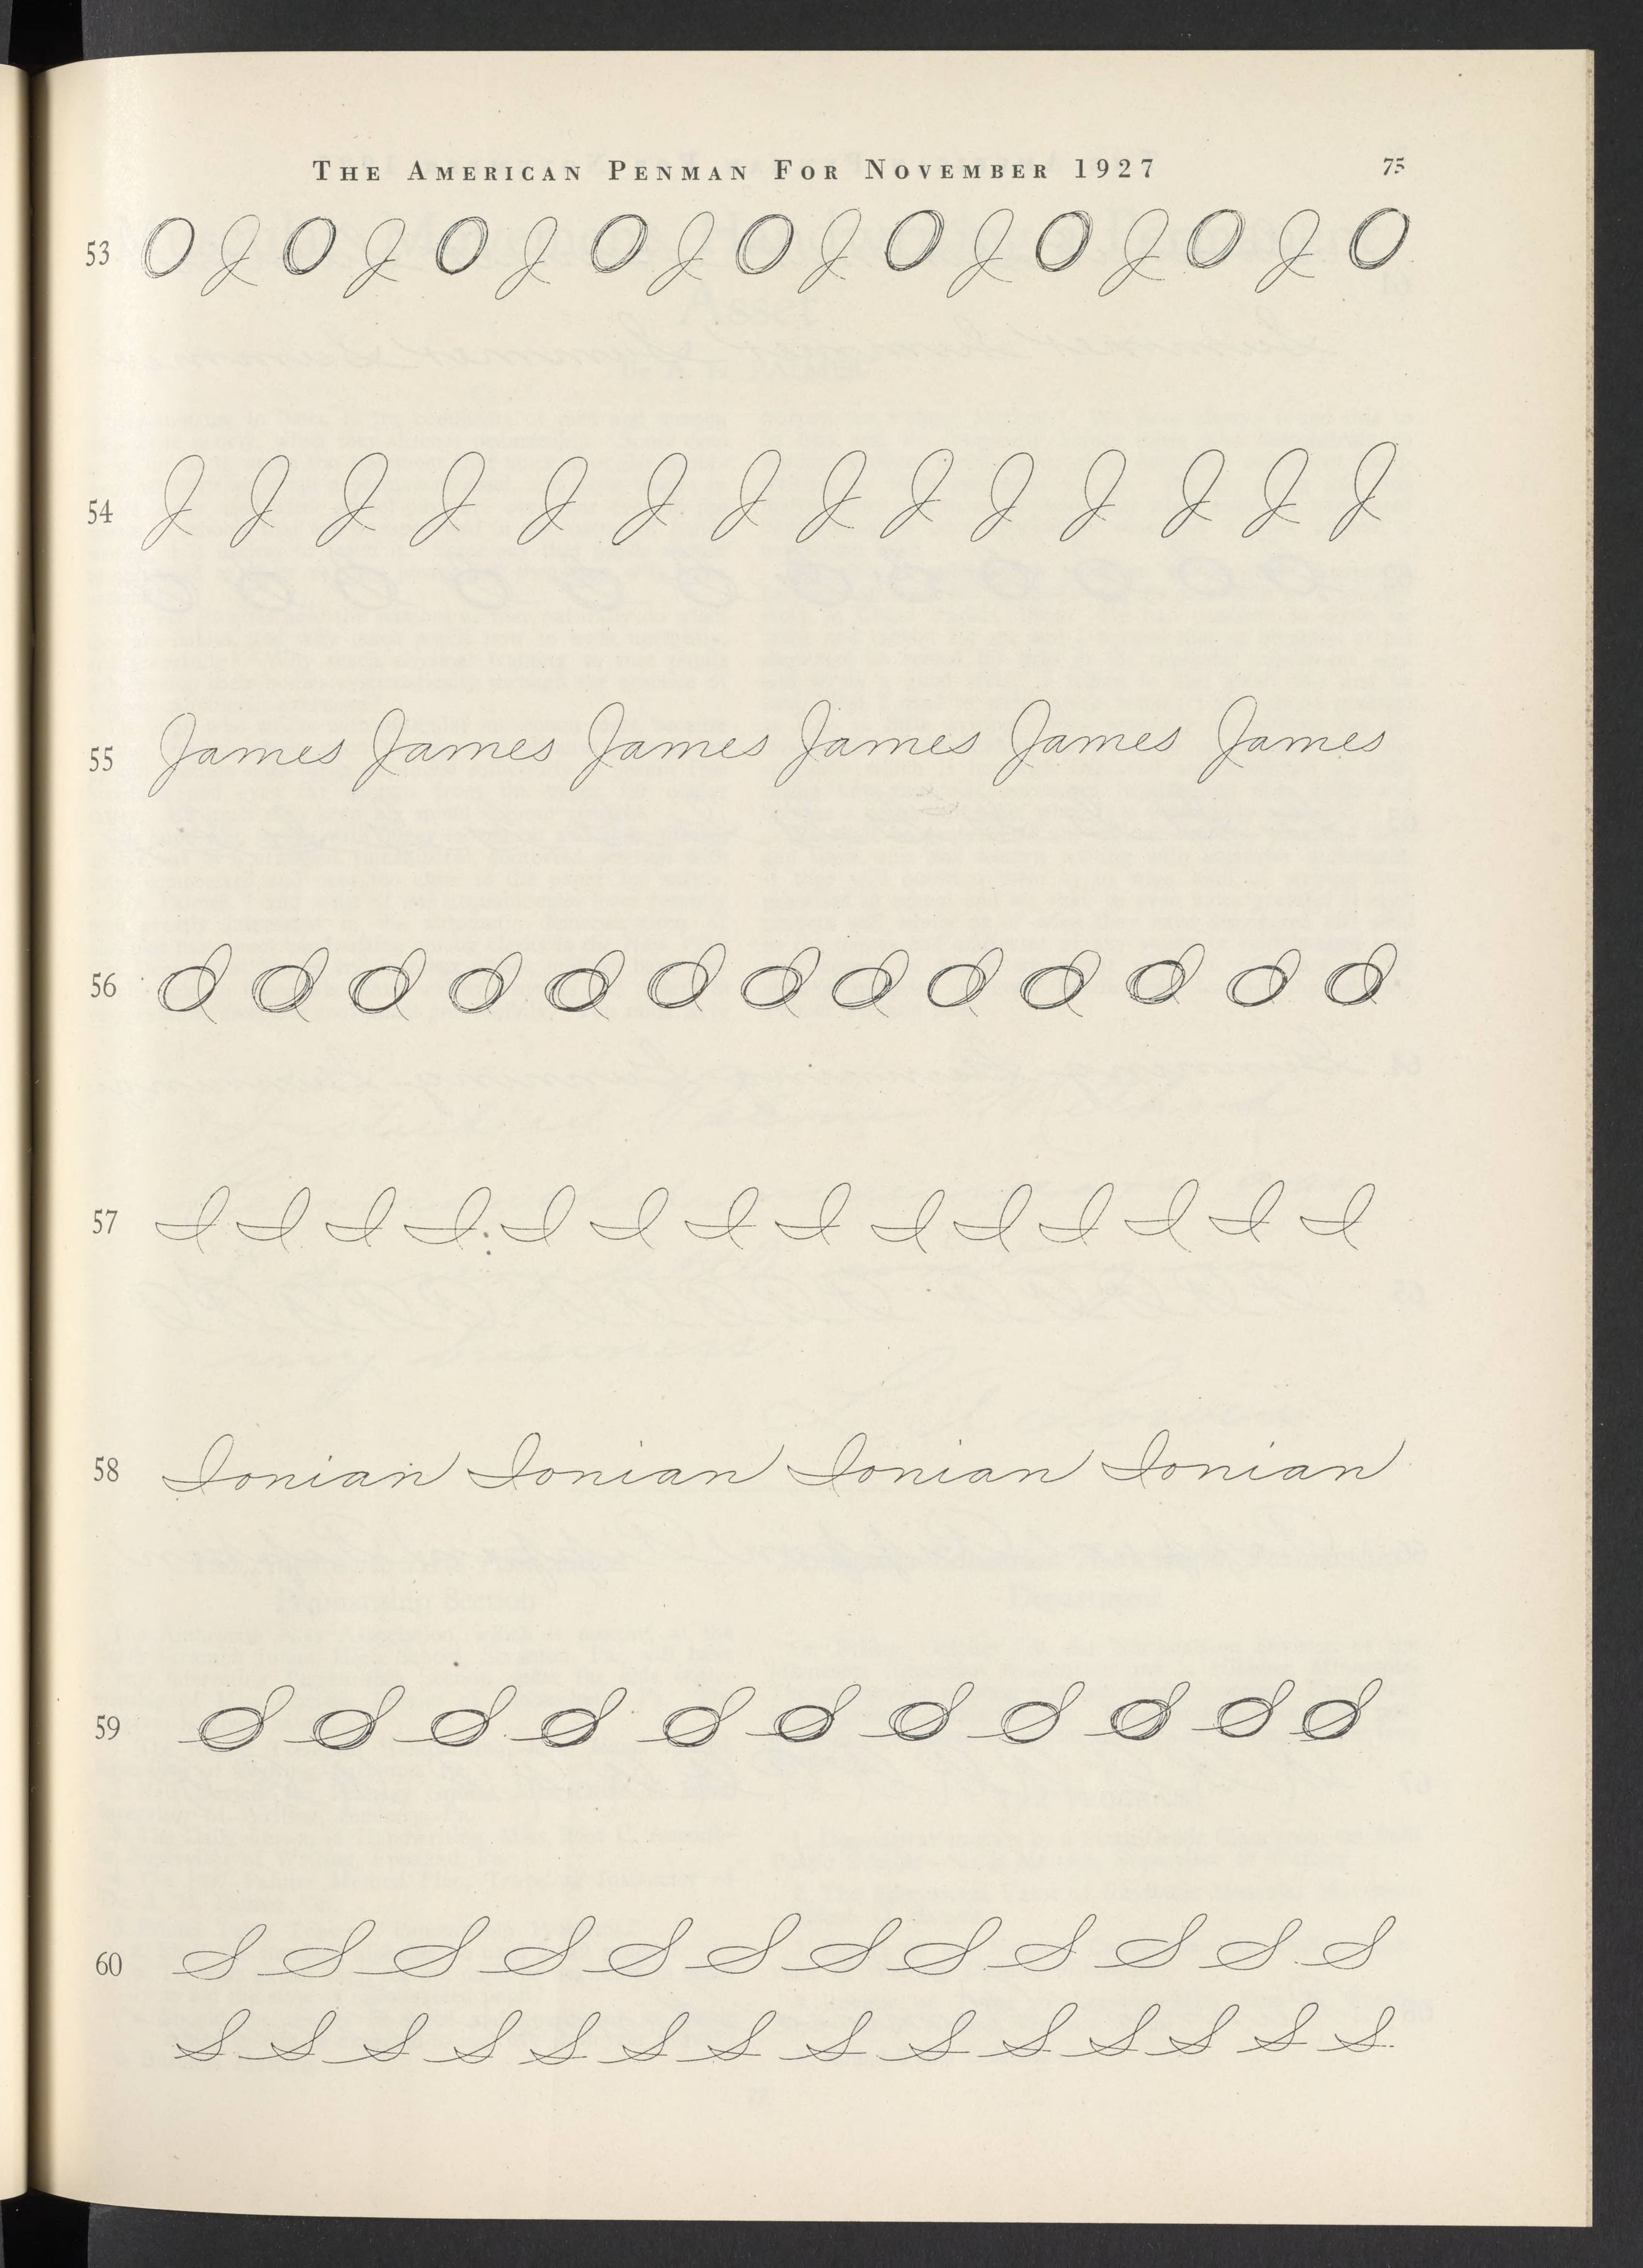 THE AMERICAN PENMAN FOR NOVEMBER 1927 75
53 O J O J O J O J O J O J O J O J O
54 J J J J J J J J J J J J J J
55 James James James James James James
56
57 I I I I I I I I I I I I I I
58 Ionian Ionian Ionian Ionian
59
60 S S S S S S S S S S S S
S S S S S S S S S S S S S S